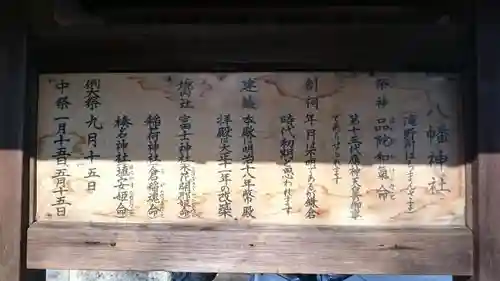 八幡神社
滝野
祭神 品陀和氣命
第十五代應神天皇の御事
であります
創祠 年月は不明であるが鎌倉
時代初期と思われます
建築 本殿は明治十八年幣殿
拝殿は大正十一年の改築
境内社 富士神社
稲荷神社 倉稲魂命
榛名神社 埴安姫命
例大祭 九月十五日
中祭 一月十五日 五月十五日